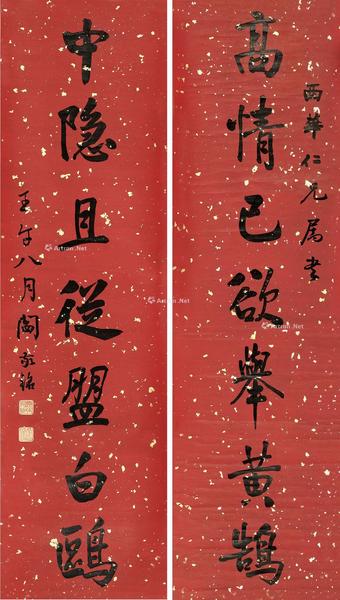 西華仁兄属書
高情已欲舉黃鵠
中隐且從盟白鷗
壬午八月閻敬銘
Artron.Net